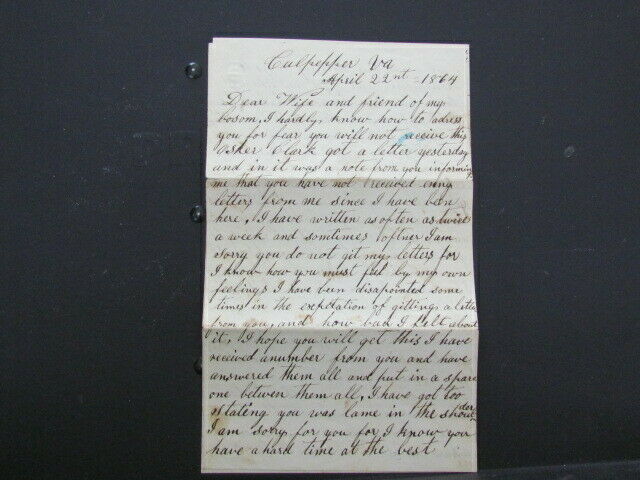 Culpepper Va
April 22nt 1864
Dear Wife and friend of my
bosom, I hardly know how to adress
you for fear you will not receive this
Asher Clark got a letter yesterday
and in it was a note from you informing
me that you have not received eny
letters from me since I have been
here, I have written as often as twice
a week and somtimes oftner I am
sorry you do not git my letters for
I know how you must feel by my own
feelings I have been disapointed some
times in the expectation of gitting a letter
from you, and how bad I felt about
it, I hope you will get this I have
received a number from you and have
answered them all and put in a spare
one betwen them all, I have got too
stating you was lame in the shoulder
I am sorry for you for I know you
have a hard time at the best